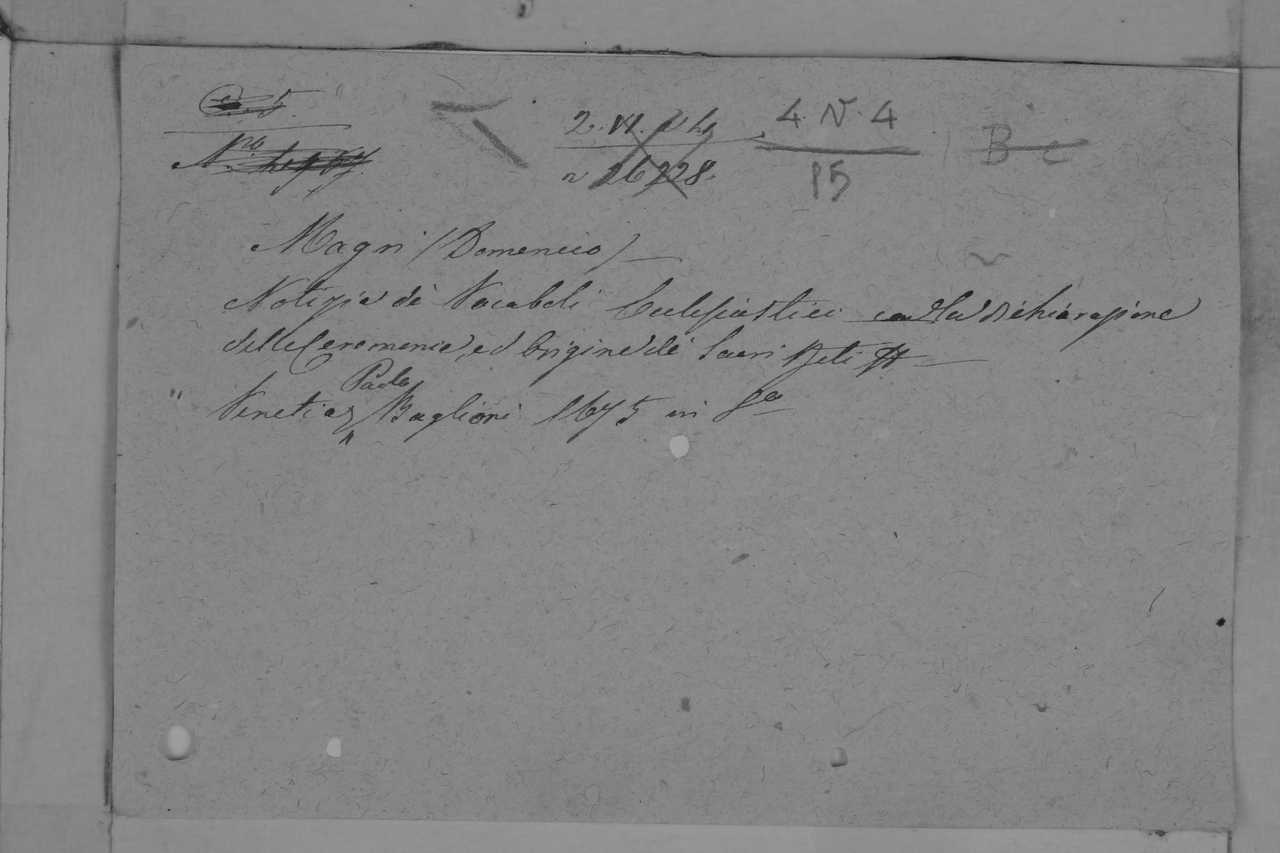 5
Nro
2. VI.
n 26228.
4. N. 4
15
B c
Magri (Domenico)
Notizia de' Vocaboli Ecclesiastici colla dichiarazione
delle Ceremonie, ed Origine de' Sacri Riti
Paolo
Venetia Baglioni 1675 in 8o